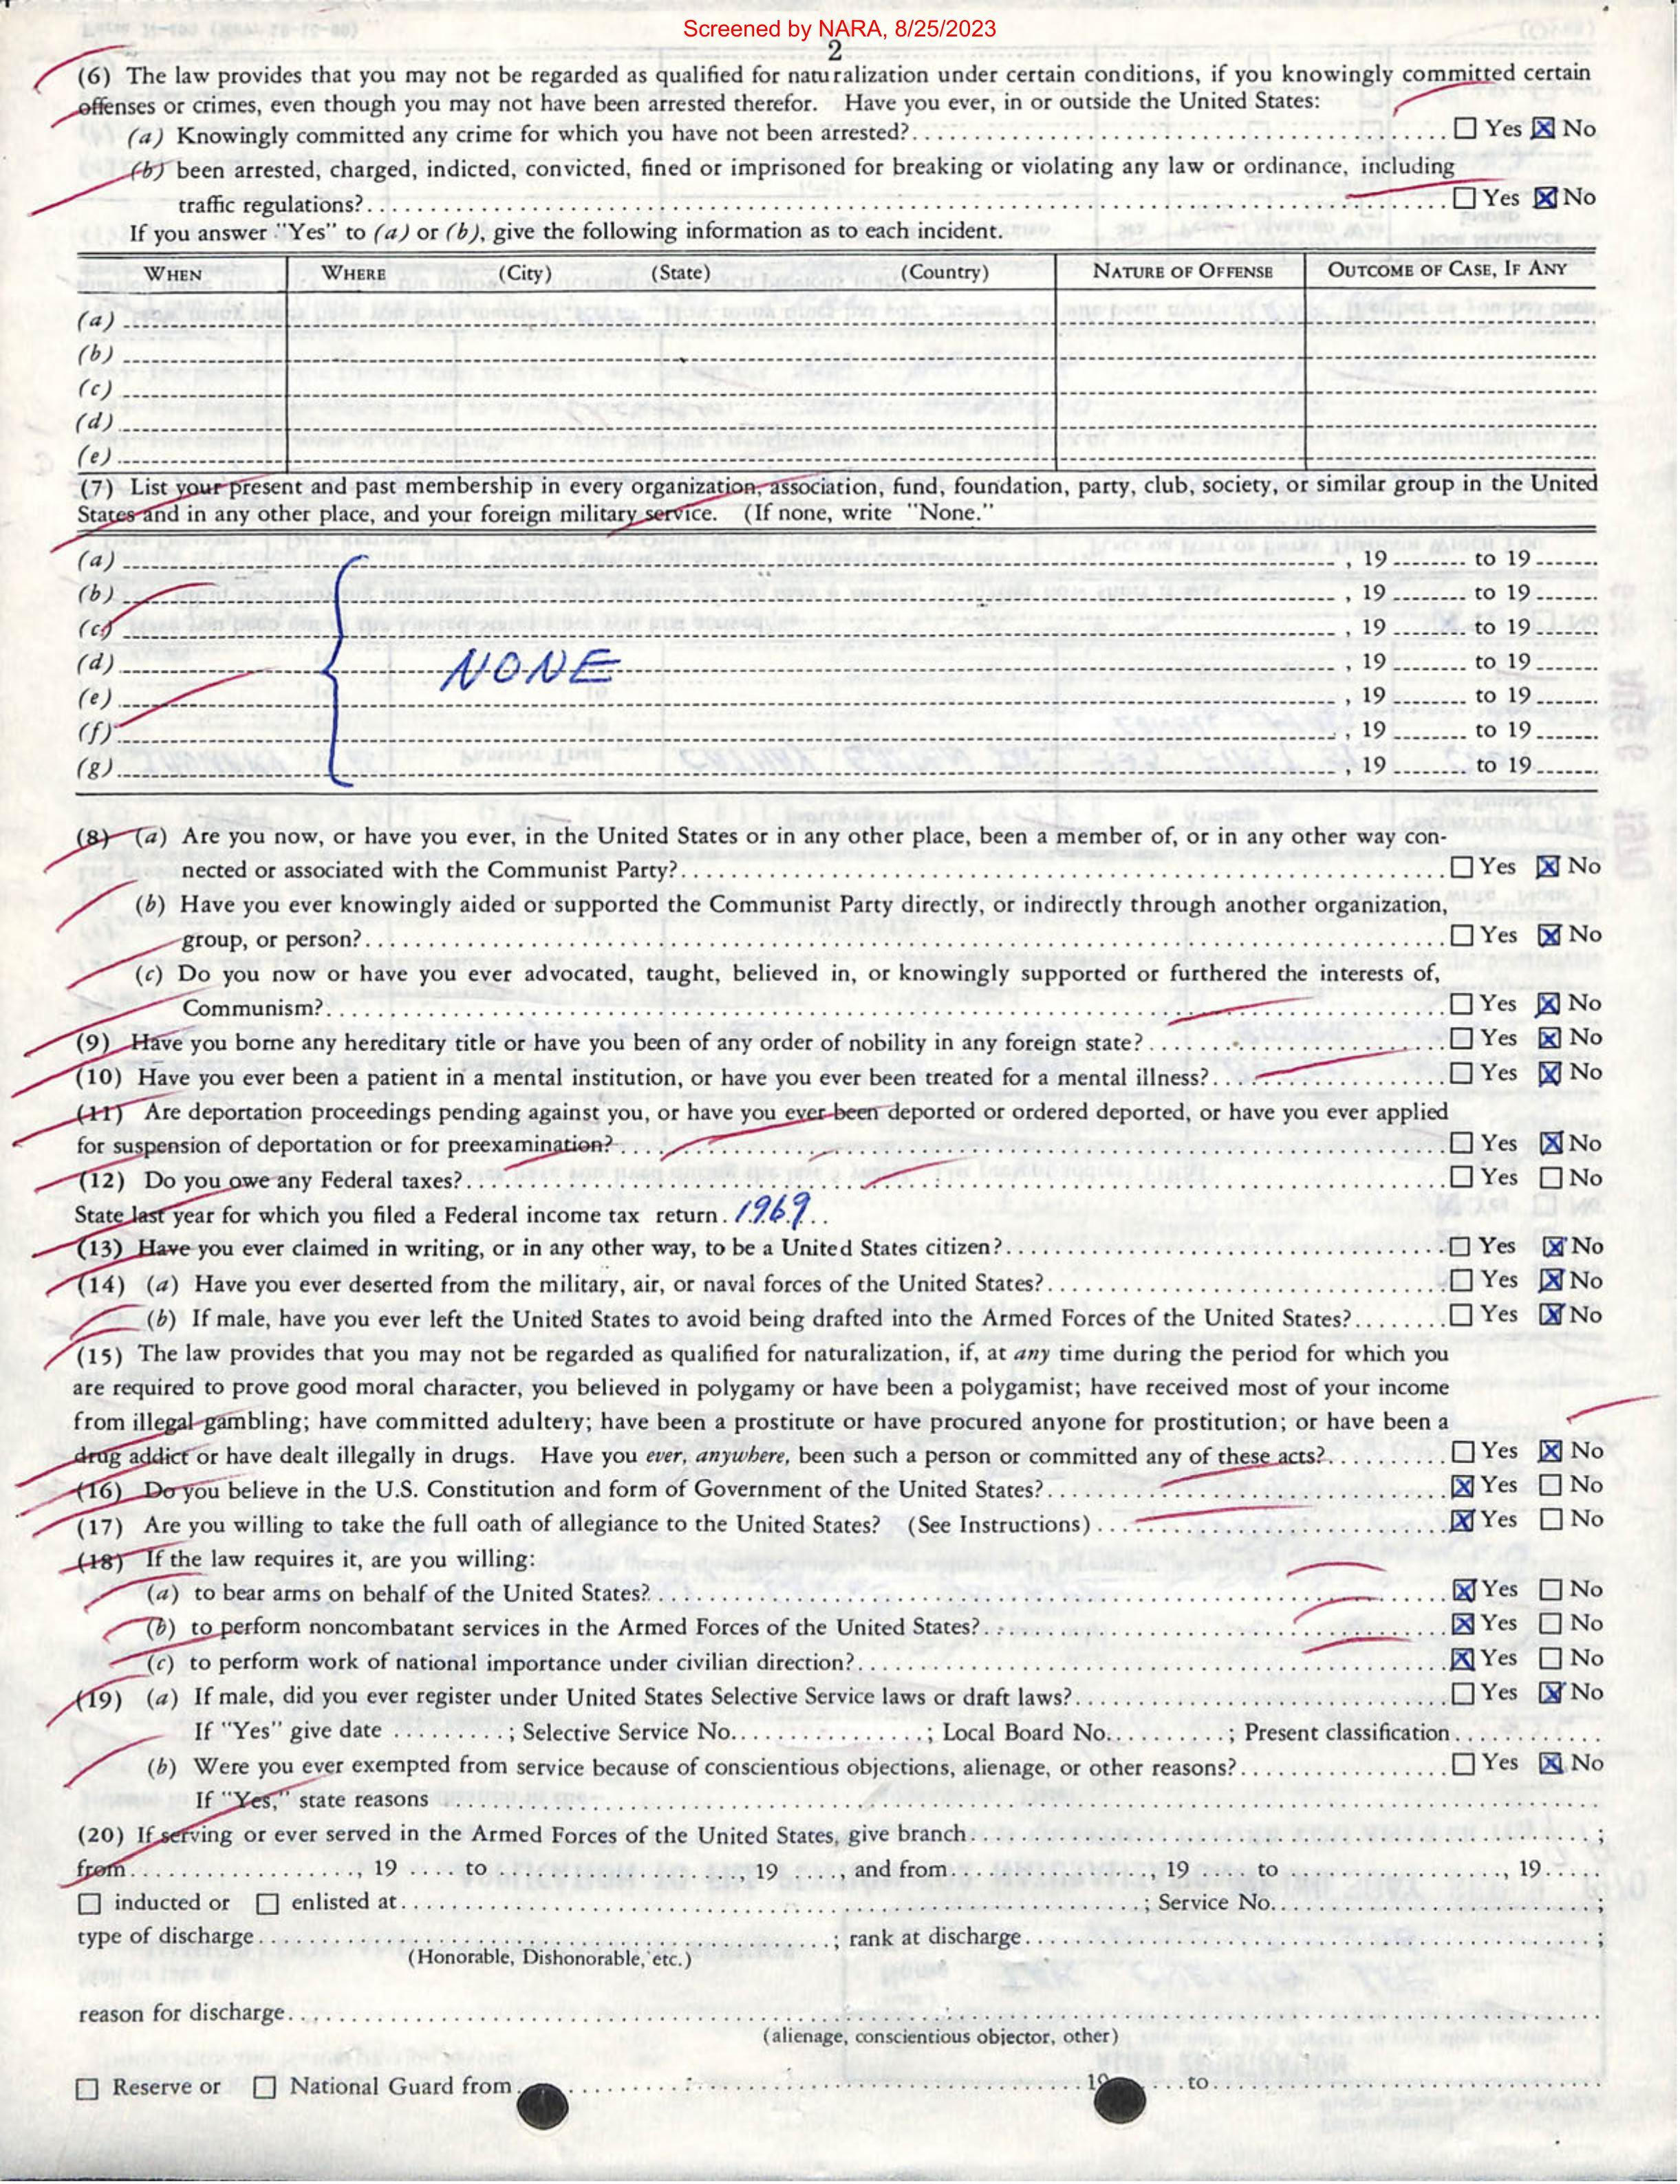 Screened by NARA, 8/25/2023
2
(6) The law provides that you may not be regarded as qualified for naturalization under certain conditions, if you knowingly committed certain
offenses or crimes, even though you may not have been arrested therefor. Have you ever, in or outside the United States:
(a) Knowingly committed any crime for which you have not been arrested?.......... ☐ Yes ☒ No
(b) been arrested, charged, indicted, convicted, fined or imprisoned for breaking or violating any law or ordinance, including
traffic regulations?.......... ☐ Yes ☒ No
If you answer "Yes" to (a) or (b), give the following information as to each incident.
WHEN WHERE (City) (State) (Country) NATURE OF OFFENSE OUTCOME OF CASE, IF ANY
(a)
(b)
(c)
(d)
(e)
(7) List your present and past membership in every organization, association, fund, foundation, party, club, society, or similar group in the United
States and in any other place, and your foreign military service. (If none, write "None."
(a) , 19 ........ to 19 ........
(b) , 19 ........ to 19 ........
(c) , 19 ........ to 19 ........
(d) NONE , 19 ........ to 19 ........
(e) , 19 ........ to 19 ........
(f) , 19 ........ to 19 ........
(g) , 19 ........ to 19 ........
(8) (a) Are you now, or have you ever, in the United States or in any other place, been a member of, or in any other way con-
nected or associated with the Communist Party?.......... ☐ Yes ☒ No
(b) Have you ever knowingly aided or supported the Communist Party directly, or indirectly through another organization,
group, or person?.......... ☐ Yes ☒ No
(c) Do you now or have you ever advocated, taught, believed in, or knowingly supported or furthered the interests of,
Communism?.......... ☐ Yes ☒ No
(9) Have you borne any hereditary title or have you been of any order of nobility in any foreign state?.......... ☐ Yes ☒ No
(10) Have you ever been a patient in a mental institution, or have you ever been treated for a mental illness?.......... ☐ Yes ☒ No
(11) Are deportation proceedings pending against you, or have you ever been deported or ordered deported, or have you ever applied
for suspension of deportation or for preexamination?.......... ☐ Yes ☒ No
(12) Do you owe any Federal taxes?.......... ☐ Yes ☐ No
State last year for which you filed a Federal income tax return. 1969..
(13) Have you ever claimed in writing, or in any other way, to be a United States citizen?.......... ☐ Yes ☒ No
(14) (a) Have you ever deserted from the military, air, or naval forces of the United States?.......... ☐ Yes ☒ No
(b) If male, have you ever left the United States to avoid being drafted into the Armed Forces of the United States?........ ☐ Yes ☒ No
(15) The law provides that you may not be regarded as qualified for naturalization, if, at any time during the period for which you
are required to prove good moral character, you believed in polygamy or have been a polygamist; have received most of your income
from illegal gambling; have committed adultery; have been a prostitute or have procured anyone for prostitution; or have been a
drug addict or have dealt illegally in drugs. Have you ever, anywhere, been such a person or committed any of these acts?.......... ☐ Yes ☒ No
(16) Do you believe in the U.S. Constitution and form of Government of the United States?.......... ☒ Yes ☐ No
(17) Are you willing to take the full oath of allegiance to the United States? (See Instructions).......... ☒ Yes ☐ No
(18) If the law requires it, are you willing:
(a) to bear arms on behalf of the United States?.......... ☒ Yes ☐ No
(b) to perform noncombatant services in the Armed Forces of the United States?.......... ☒ Yes ☐ No
(c) to perform work of national importance under civilian direction?.......... ☒ Yes ☐ No
(19) (a) If male, did you ever register under United States Selective Service laws or draft laws?.......... ☐ Yes ☒ No
If "Yes" give date ..........; Selective Service No...........; Local Board No...........; Present classification..........
(b) Were you ever exempted from service because of conscientious objections, alienage, or other reasons?.......... ☐ Yes ☒ No
If "Yes," state reasons ..........
(20) If serving or ever served in the Armed Forces of the United States, give branch..........;
from.........., 19 .... to .........., 19 ...., and from.........., 19 .... to .........., 19.....
☐ inducted or ☐ enlisted at..........; Service No...........;
type of discharge..........; rank at discharge..........;
(Honorable, Dishonorable, etc.)
reason for discharge..........
(alienage, conscientious objector, other)
☐ Reserve or ☐ National Guard from.......... 19 ....to..........